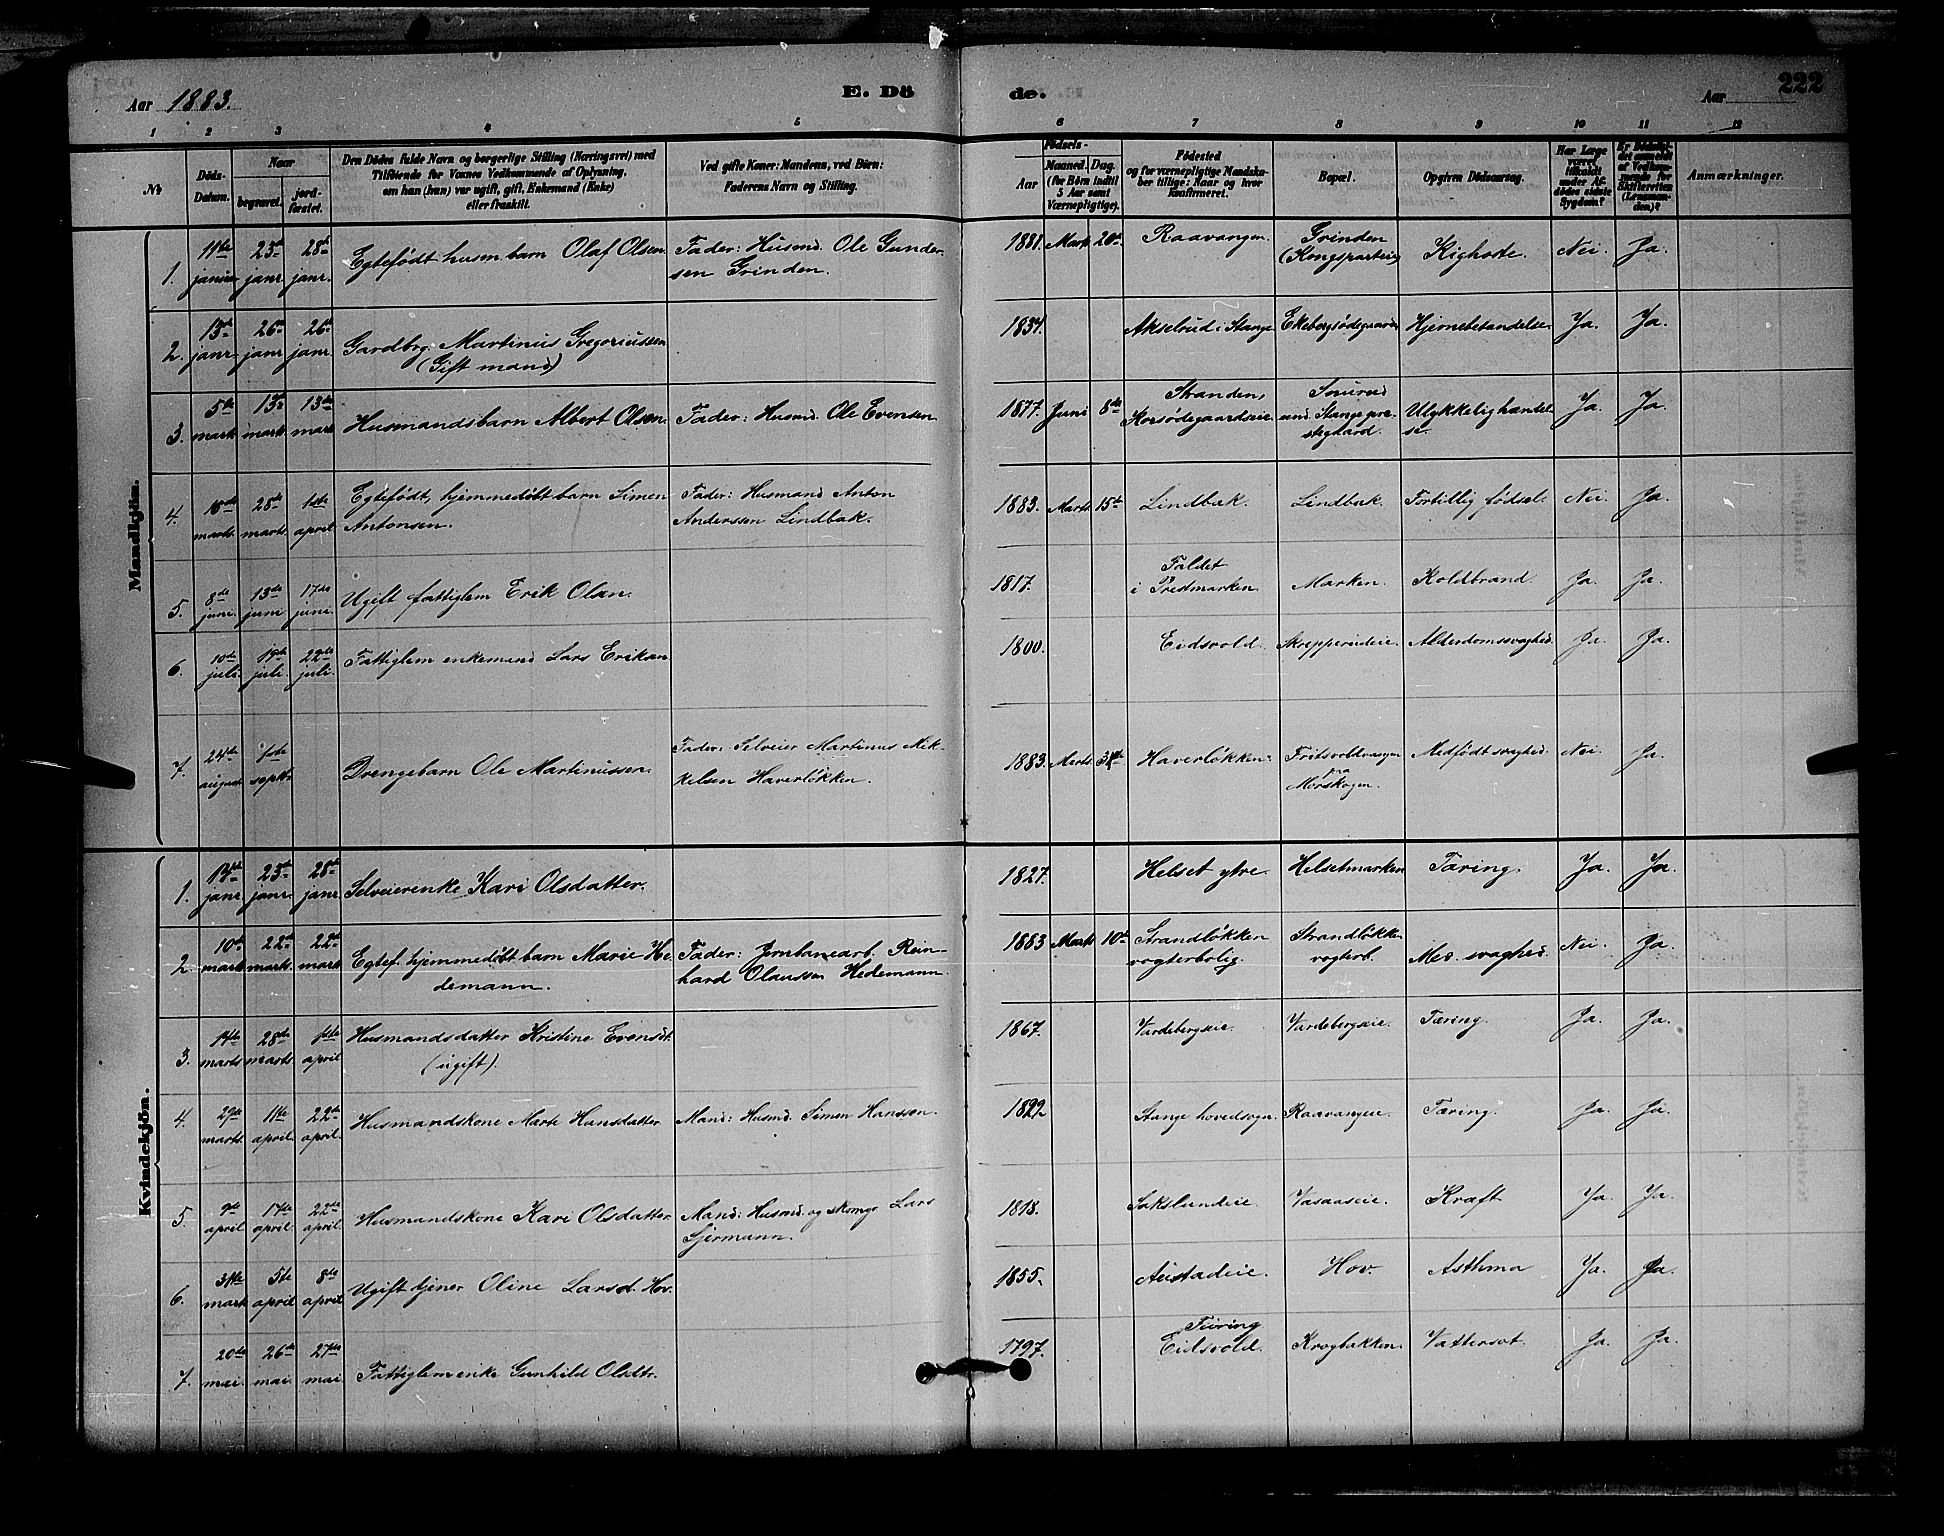 Aar 1883.
E. Döde.
222
Aar
1 2 3 4 5 6 7 8 9 10 11 12
No
Döds-Datum.
Naar
begravet.
jordfæstet.
Den Dødes fulde Navn og borgerlige Stilling (Næringsvei) med
Tilføiende for Voxnes Vedkommende af Oplysning,
om han (hun) var ugift, gift, Enkemand (Enke)
eller fraskilt.
Ved gifte Koner: Mandens, ved Børn:
Faderens Navn og Stilling.
Fødsels-
Aar
Maaned. Dag.
(for Børn indtil
5 Aar samt
Værnepligtige).
Fødested
og for værnepligtige Mandskaber tillige: Naar og hvor
konfirmeret.
Bopæl.
Opgiven Dødsaarsag.
Har Læge
været
tilkaldt
under Afdødes sidste
Sygdom?
Er Dødsfaldet anmeldt
af Vedkommende for
Skifteretten
(Lensmanden)?
Anmærkninger.
Mandkjön.
1. 11te januar 23de janr. 28de janr. Egtefødt husm. barn Olaf Olsen. Fader: Husmd. Ole Gundersen Grinden. 1881. Marts 20de Raavangen. Grinden (Kongsparteie) Kighoste. Nei. Ja.
2. 13de janr. 26de janr. 26de janr. Gardbrg. Martinus Gregoriussen (Gift mand) 1834. Akselrud i Stange Ekebergsødegaarden Hjernebetændelse. Ja. Ja.
3. 5te marts 13de marts 13de marts Husmandsbarn Albert Olsen. Fader: Husmd. Ole Evensen. 1877. Juni 8de Stranden, Korsødegaardseie und. Stange præstegaard. Ulykkelig hændelse. Ja. Ja.
4. 15de marts. 28de marts. 1ste april Egtefødt, hjemmedøbt barn Simen Antonsen. Fader: Husmand Anton Anderssen Lindbak. 1883. Marts. 15de Lindbak. Lindbak. Fortidlig fødsel. Nei. Ja.
5. 8de juni. 13de juni 17de juni. Ugift fattiglem Erik Olsen. 1817. Faldet i Prestmarken. Marken. Koldbrand. Ja. Ja.
6. 10de juli. 19de juli. 22de juli. Fattiglem enkemand Lars Eriksen 1800. Eidsvold. Skrepperudeie. Alderdomssvaghed. Ja. Ja.
7. 24de august. 1ste septbr. Drengebarn Ole Martinussen. Fader: Selveier Martinus Mikkelsen Haverløkken. 1883. Marts 31te Haverløkken. Fritsvoldvangen paa Morskogen. Medfødt svaghed. Nei. Ja.
Kvindekjön.
1. 14de janr. 23de janr. 28de janr. Selveierenke Kari Olsdatter. 1827. Helset ytre. Helsetmarken Tæring. Ja. Ja.
2. 10de marts 22de marts. 22de marts Egtef. hjemmedøbt barn Marie Hedemann. Fader: Jernbanearb. Reinhard Olaussen Hedemann. 1883 Marts 10de Strandløkken vogterbolig. Strandløkken vogterb. Med. svaghed. Nei. Ja.
3. 14de marts 28de marts 1ste april Husmandsdatter Kristine Evensdt. (ugift). 1867. Vardebergseie. Vardebergseie. Tæring. Ja. Ja.
4. 29de marts. 11te april. 22de april. Husmandskone Marte Hansdatter Mand: Husmd. Simen Hanssen. 1822 Stange hovedsogn. Raavangeie. Tæring. Ja. Ja.
5. 9de april 17de april. 22de april. Husmandskone Kari Olsdatter. Mand: Husmd. og skomgr. Lars Sjermann. 1818. Sakslundeie Vasaaseie. Kræft Ja. Ja.
6. 31te marts 5te april 8de april Ugift tjener Oline Larsd. Hov. 1855. Austadeie. Hov. Asthma Ja. Ja.
7. 20de mai. 26de mai. 27de mai. Fattiglem enke Gunhild Olsdtr. 1797. Feiring Eidsvold. Krogbakken. Vattersot. Ja. Ja.